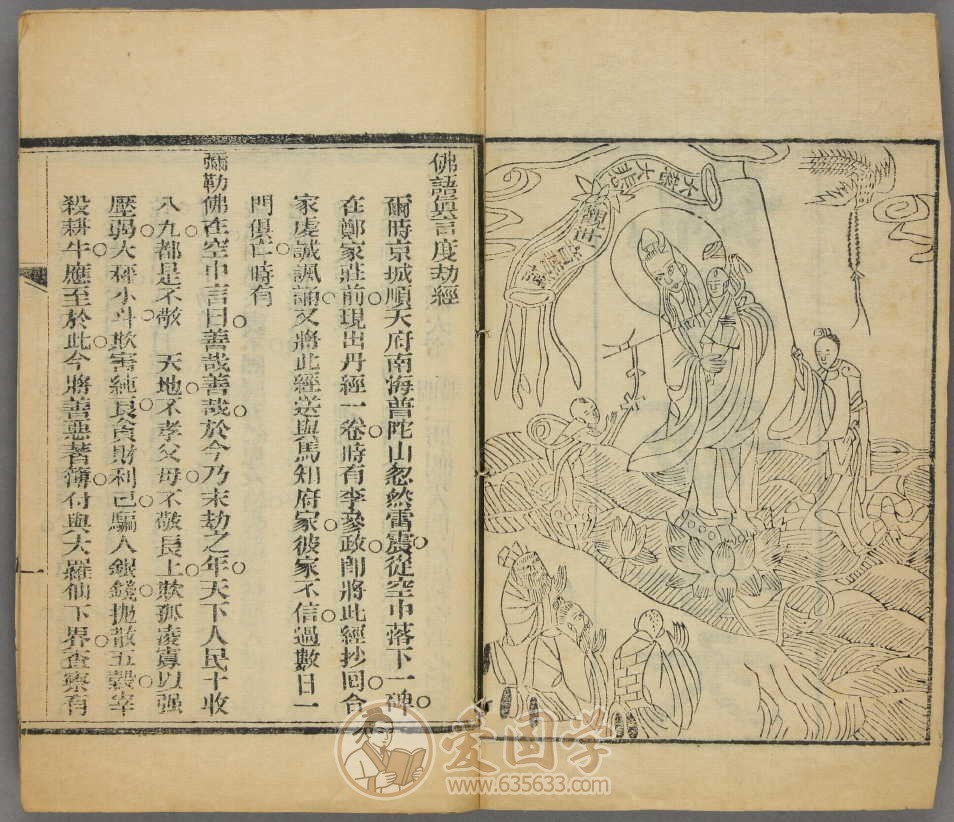 佛語眞言度劫經
爾時京城順天府南海普陀山忽然雷震從空中落下一碑
在鄭家莊前現出丹經一卷時有李參政卽將此經抄回合
家虔誠諷誦又將此經送與馬知府家彼家不信過數日一
門俱亡時有
彌勒佛在空中言曰善哉善哉於今乃末劫之年天下人民十收
八九都是不敬 天地不孝父母不敬長上欺孤凌寡以强
壓弱大秤小斗欺害純良貪財利已騙人銀錢拋散五穀宰
殺耕牛應至於此今將善惡著簿付與大羅仙下界查察有
一
大慈大悲
爱国学
www.635633.com